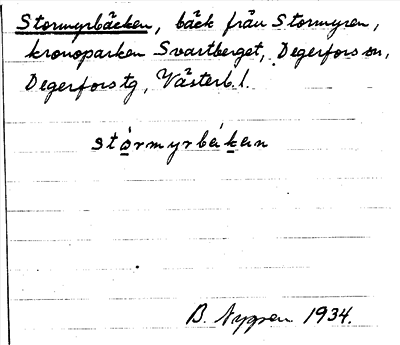 Stormyrbäcken, bäck från Stormyren,
kronoparken Svartberget, Degerfors sn,
Degerfors tg, Västerb. l.
stórmyrbékan
B. Nygren 1934.